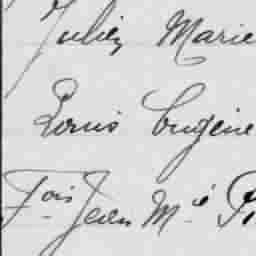 Julien Marie
Louis Eugène
Fois Jean M.ie